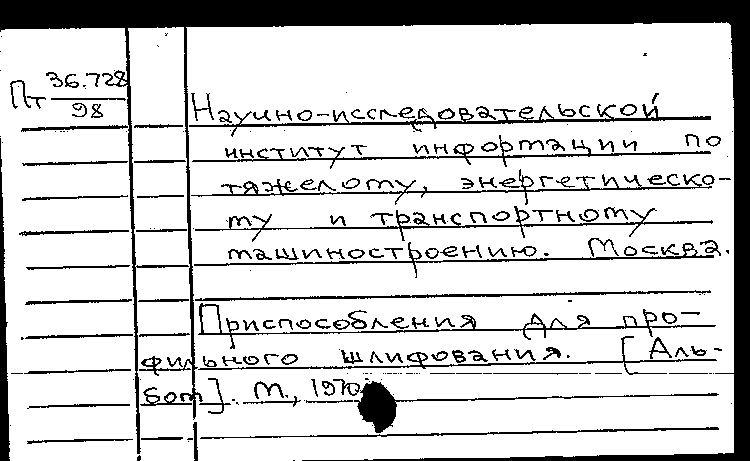 Пт 36.728
98
Научно-исследовательской
институт информации по
тяжелому, энергетическо-
му и транспортному
машиностроению. Москва.
Приспособления для про-
фильного шлифования. [Аль-
бом]. М., 1970